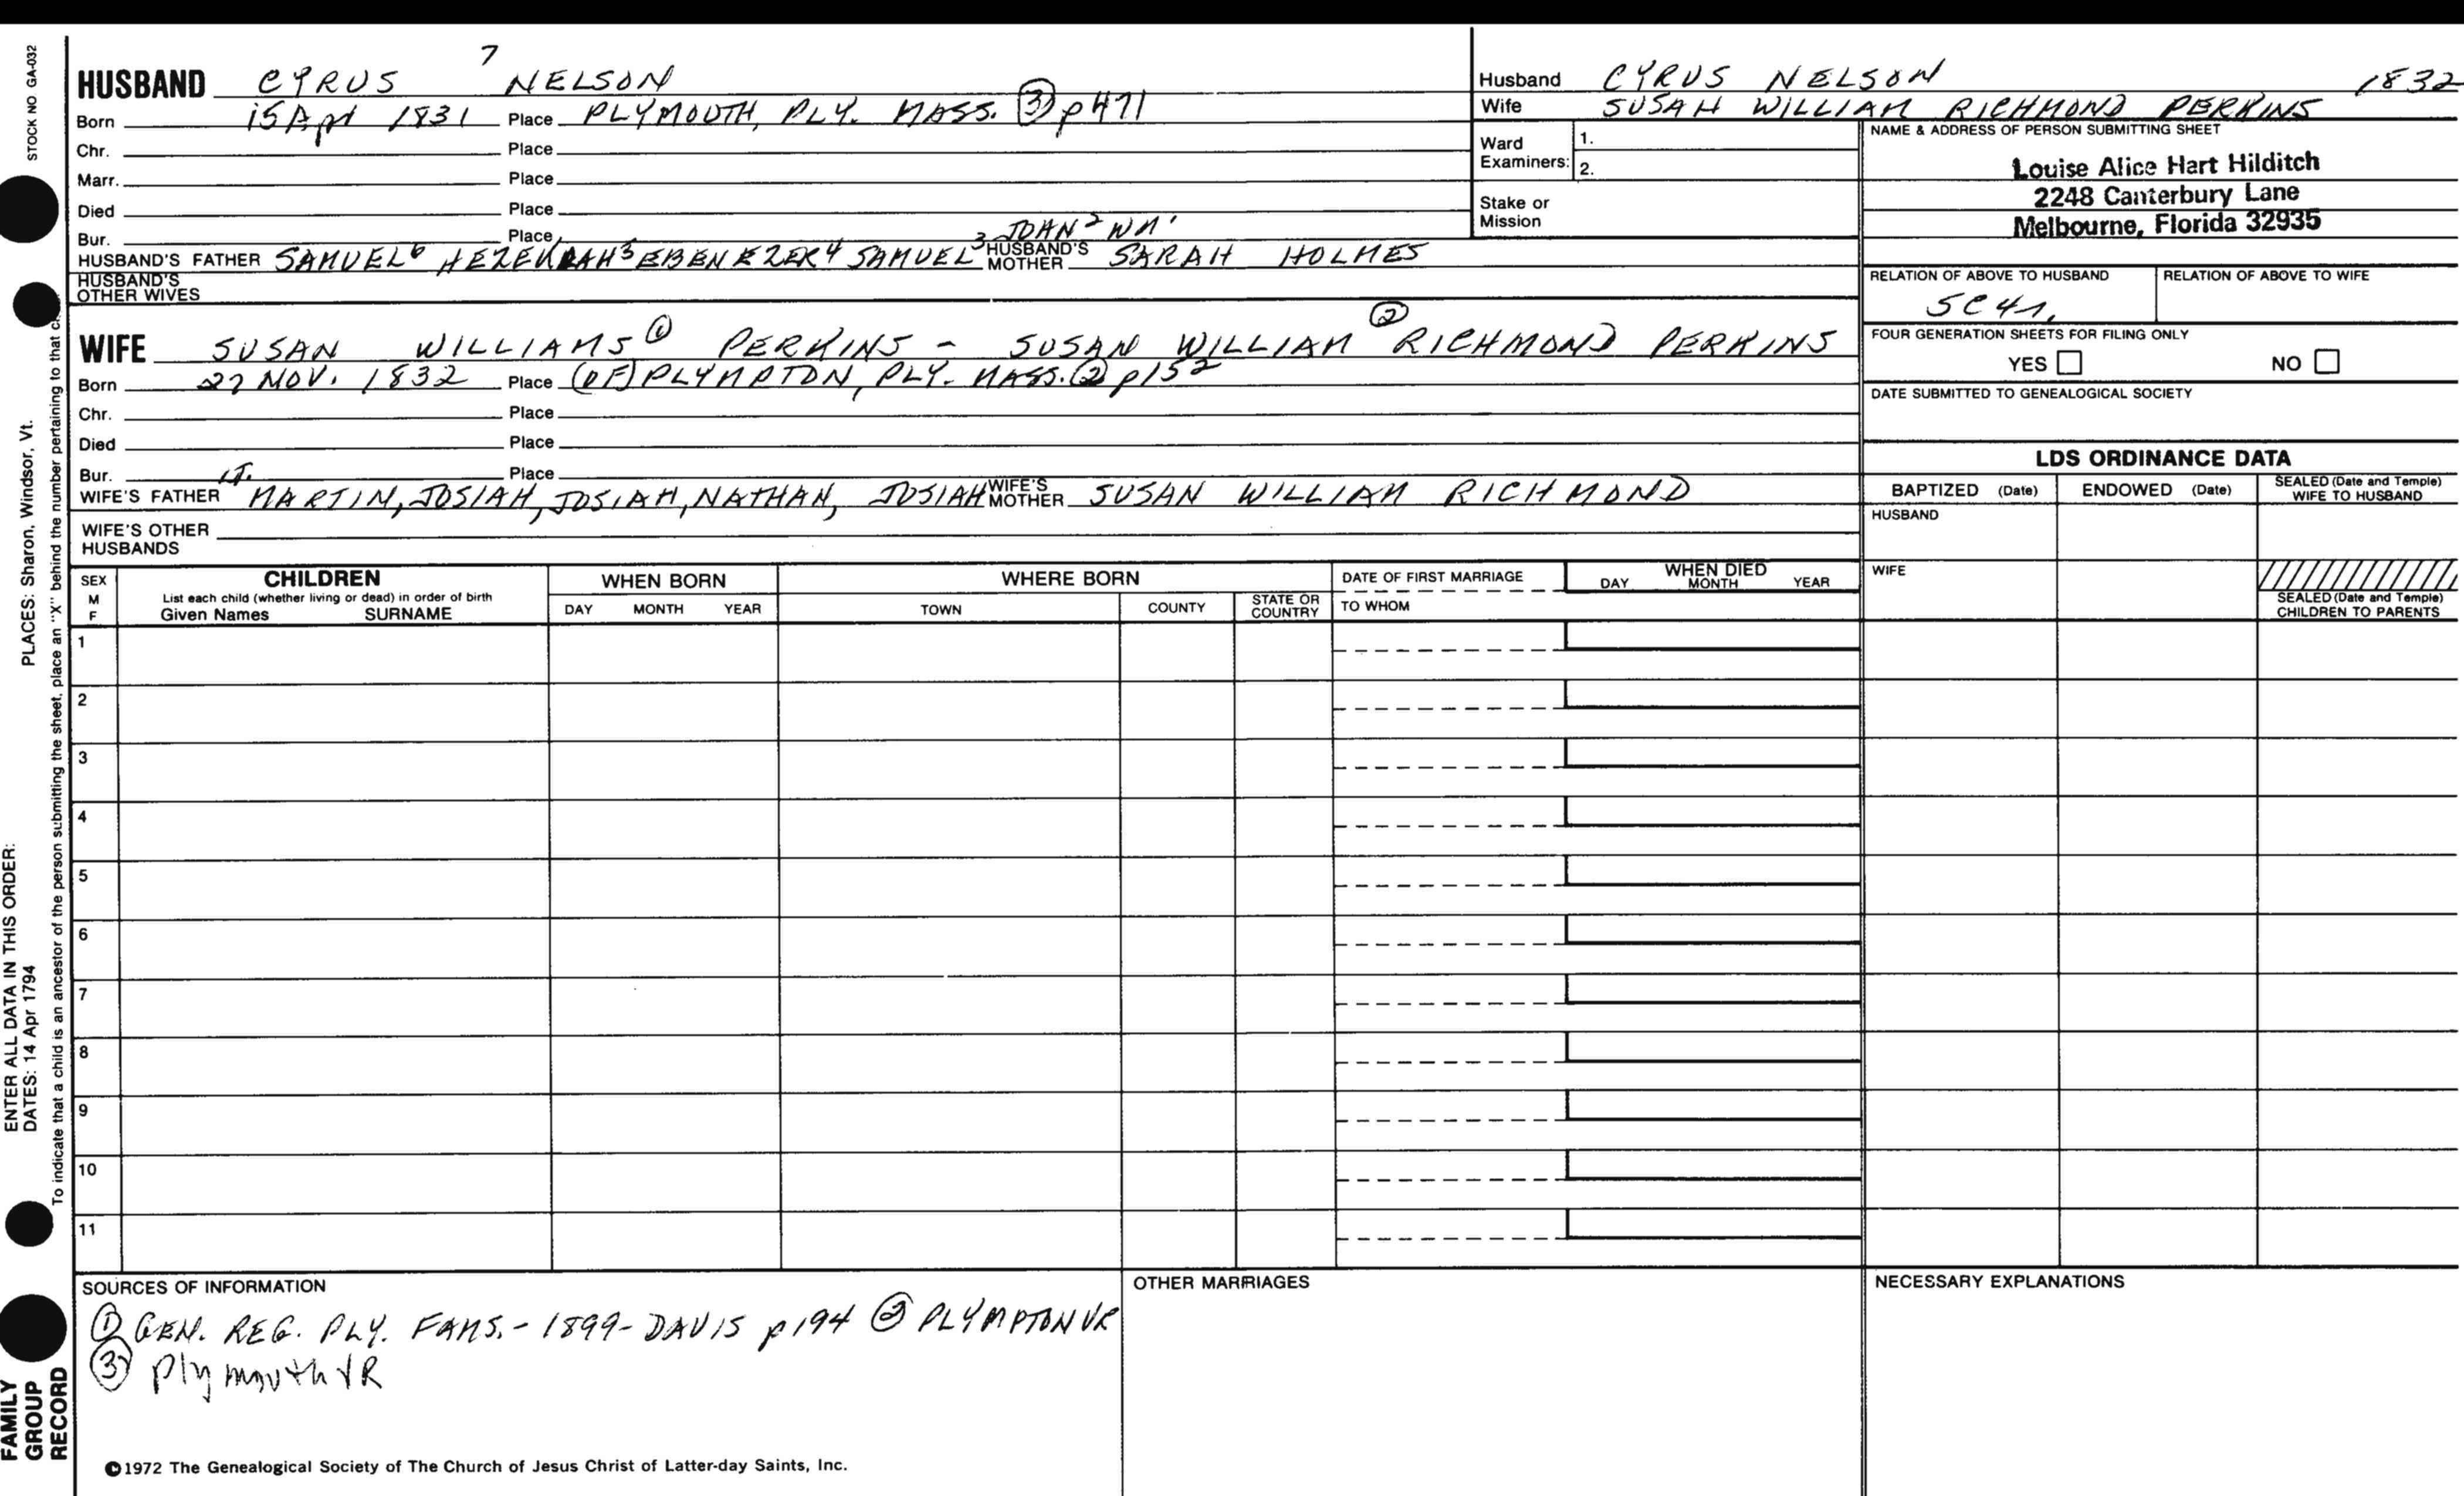 HUSBAND CYRUS 7 NELSON
Born 15 Apr 1831 Place PLYMOUTH, PLY. MASS. ③ p471
Chr. Place
Marr. Place
Died Place
Bur. Place 3 JOHN 2 WM 1
HUSBAND'S FATHER SAMUEL 6 HEZEKIAH 5 EBENEZER 4 SAMUEL HUSBAND'S MOTHER SARAH HOLMES
HUSBAND'S OTHER WIVES
WIFE SUSAN WILLIAMS ① PERKINS - SUSAN WILLIAM ② RICHMOND PERKINS
Born 27 NOV. 1832 Place (OF) PLYMPTON, PLY. MASS. ② p152
Chr. Place
Died Place
Bur. Place
WIFE'S FATHER MARTIN, JOSIAH, JOSIAH, NATHAN, JOSIAH WIFE'S MOTHER SUSAN WILLIAM RICHMOND
WIFE'S OTHER HUSBANDS
Husband CYRUS NELSON 1832
Wife SUSAN WILLIAM RICHMOND PERKINS
Ward Examiners: 1.
2.
Stake or Mission
NAME & ADDRESS OF PERSON SUBMITTING SHEET
Louise Alice Hart Hilditch
2248 Canterbury Lane
Melbourne, Florida 32935
RELATION OF ABOVE TO HUSBAND RELATION OF ABOVE TO WIFE
5C4r.
FOUR GENERATION SHEETS FOR FILING ONLY
YES NO
DATE SUBMITTED TO GENEALOGICAL SOCIETY
LDS ORDINANCE DATA
BAPTIZED (Date) ENDOWED (Date) SEALED (Date and Temple) WIFE TO HUSBAND
HUSBAND
WIFE
SEALED (Date and Temple) CHILDREN TO PARENTS
SEX M F
CHILDREN
List each child (whether living or dead) in order of birth
Given Names SURNAME
WHEN BORN
DAY MONTH YEAR
WHERE BORN
TOWN COUNTY STATE OR COUNTRY
DATE OF FIRST MARRIAGE
TO WHOM
WHEN DIED
DAY MONTH YEAR
1
2
3
4
5
6
7
8
9
10
11
SOURCES OF INFORMATION
① GEN. REG. PLY. FAMS. - 1899 - DAVIS p194 ② PLYMPTON VR
③ Plymouth VR
OTHER MARRIAGES
NECESSARY EXPLANATIONS
©1972 The Genealogical Society of The Church of Jesus Christ of Latter-day Saints, Inc.
STOCK NO GA-032
PLACES: Sharon, Windsor, Vt.
ENTER ALL DATA IN THIS ORDER:
DATES: 14 Apr 1794
To indicate that a child is an ancestor of the person submitting the sheet, place an "X" behind the number pertaining to that
FAMILY
GROUP
RECORD